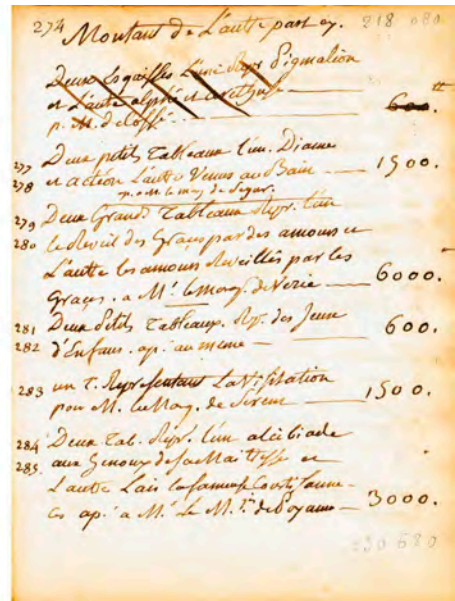 274 Montant de L'autre part cy. 218 080
Deux Esquisses L'une Repr Pigmalion
et L'autre alphé et aretuse 600 ₶
p. M. de
277 Deux petits Tableaux l'un Diane
278 et actéon L'autre Venus au Bain 1500.
p. M. le marq. de Segur.
279 Deux Grands Tableaux Repr. l'un
280 le Reveil des Graces par des amours et
L'autre les amours Reveillés par les
Graces. a Mr. le Marq. de Verie 6000.
281 Deux Petits Tableaux. Rep. des Jeux 600.
282 d'Enfans. ap. au meme
283 un T. Representant La Visitation
pour M. le Marq. de 1500.
284 Deux Tab. Repr. l'un alcibiade
285. aux Genoux de sa Maitresse et
L'autre Lais la fameuse Courtisanne
ap. a Mr. Le M. de Poyanne 3000.
230 680